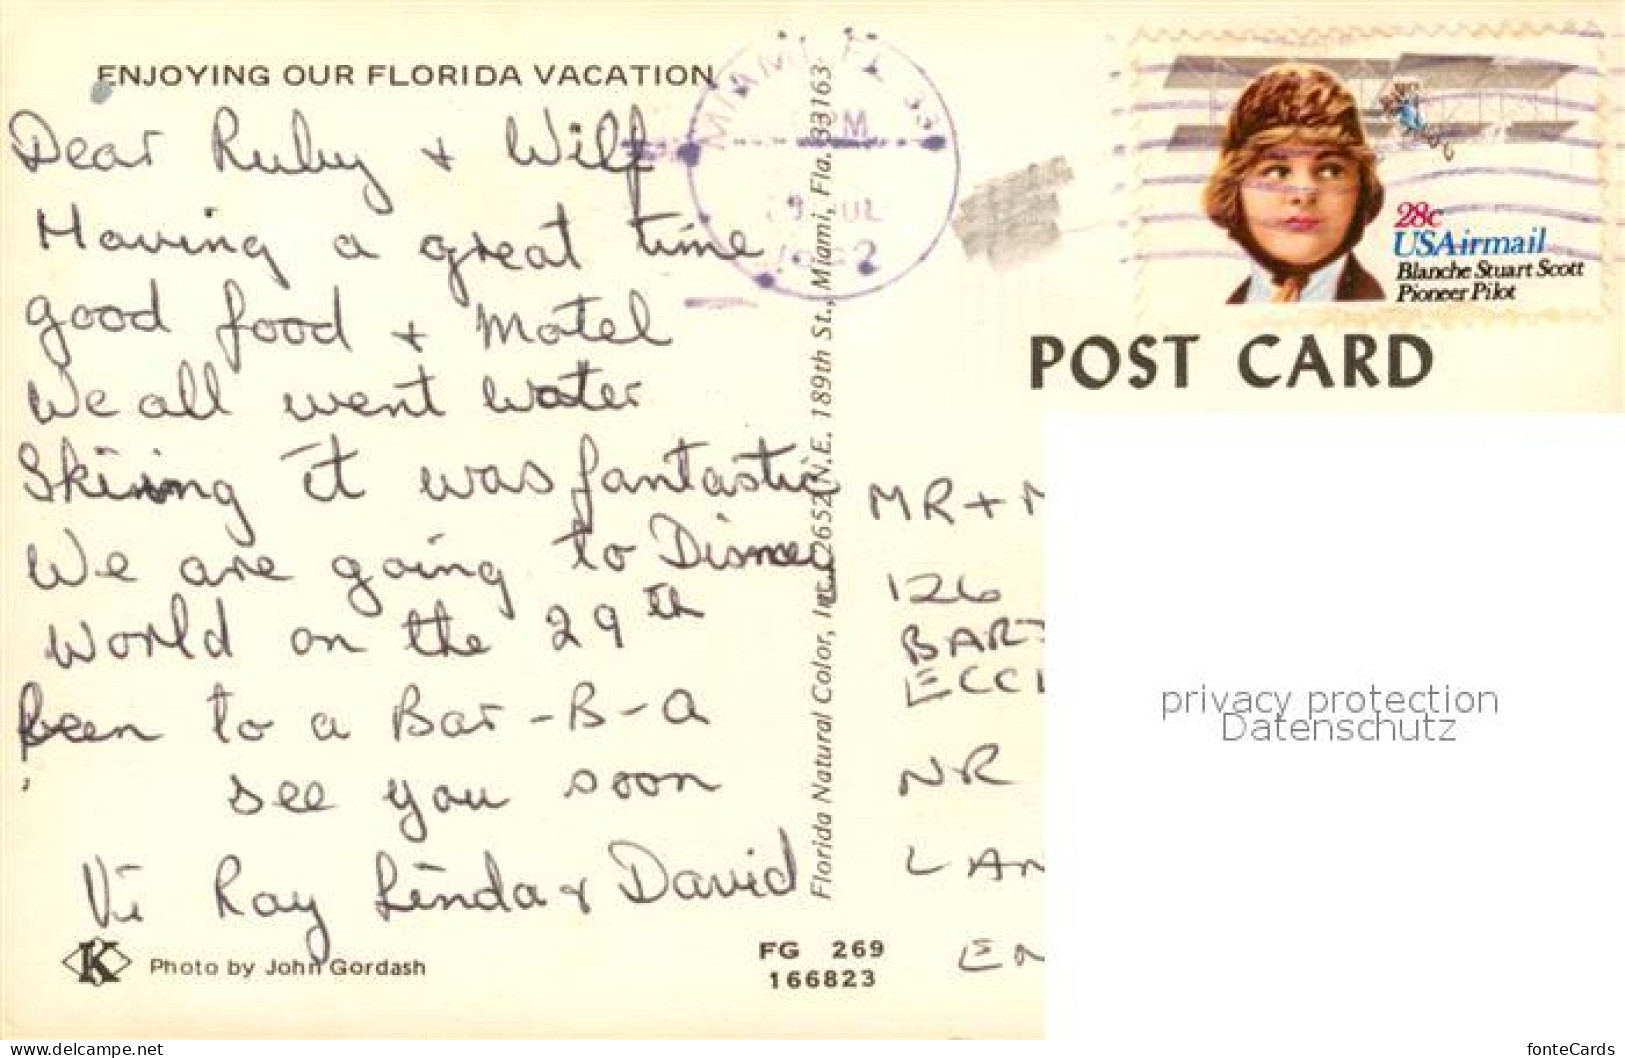 ENJOYING OUR FLORIDA VACATION
Dear Ruby + Wilf
Having a great time
good food + Motel
We all went water
Skiing it was fantastic
We are going to Disney
World on the 29th
been to a Bar-B-Q
see you soon
Vi Ray Linda & David
K
Photo by John Gordash
FG 269
166823
Florida Natural Color, Inc., 2652 N.E. 189th St., Miami, Fla. 33163
MIAMI FL 33
PM
JUL
1982
28c
USAirmail
Blanche Stuart Scott
Pioneer Pilot
POST CARD
MR + M
126
BAR
ECCL
NR
LAN
EN
privacy protection
Datenschutz
www.delcampe.net
fonteCards